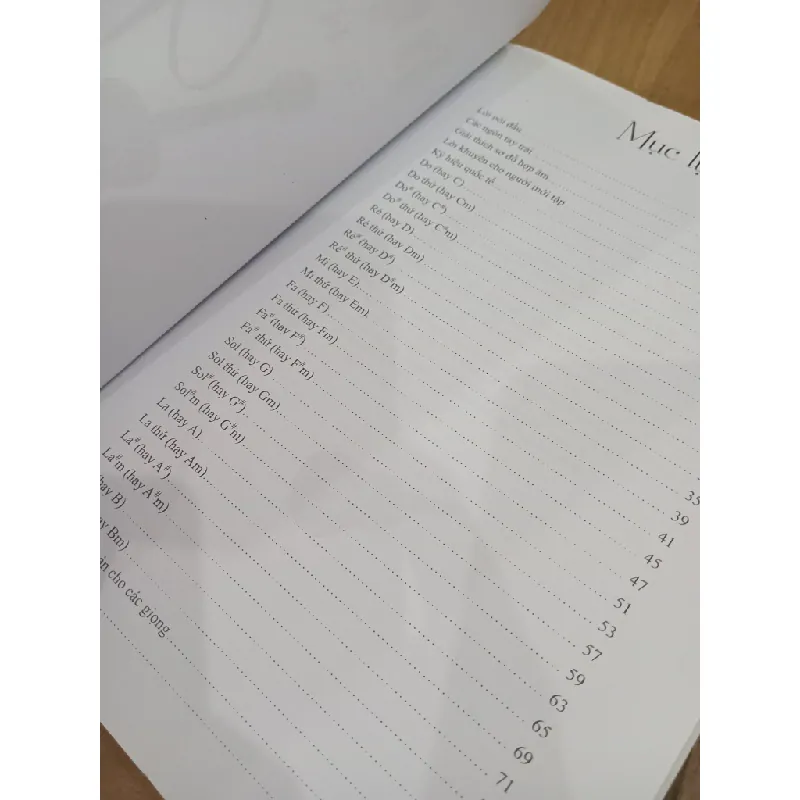 Mục
Lời nói đầu
Các ngón tay trái
Giải thích sơ đồ hợp âm
Lời khuyên cho người mới tập
Ký hiệu quốc tế
Do (hay C)
Do thứ (hay Cm)
Do# (hay C#)
Do# thứ (hay C#m)
Rê (hay D)
Rê thứ (hay Dm)
Rê# (hay D#)
Rê# thứ (hay D#m)
Mi (hay E)
Mi thứ (hay Em)
Fa (hay F)
Fa thứ (hay Fm)
Fa# (hay F#)
Fa# thứ (hay F#m)
Sol (hay G)
Sol thứ (hay Gm)
Sol# (hay G#)
Sol#m (hay G#m)
La (hay A)
La thứ (hay Am)
La# (hay A#)
La#m (hay A#m)
B)
Bm)
cho các giọng
35
39
41
45
47
51
53
57
59
63
65
69
71